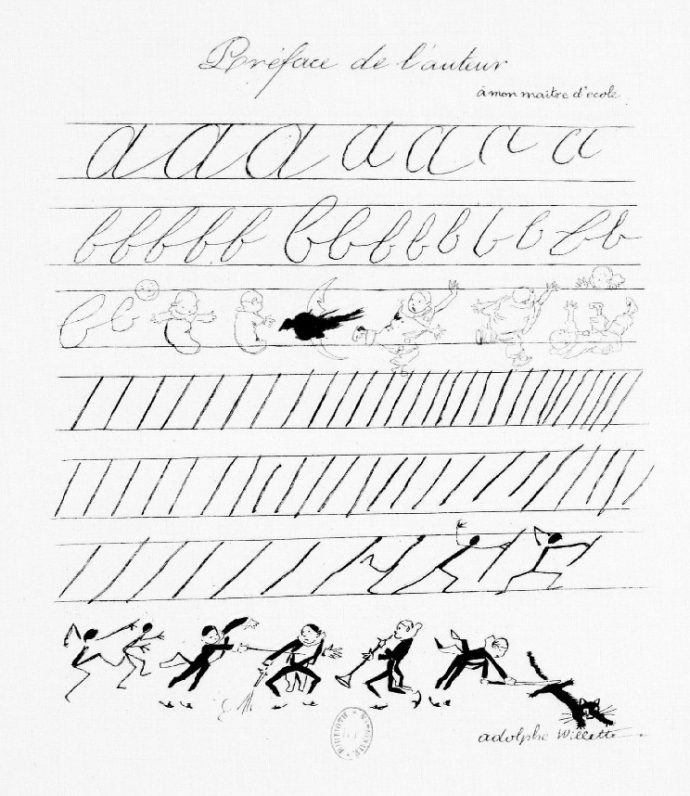 Préface de l'auteur
à mon maitre d'ecole
a a a a a a a
b b b b b b b b b b b b b
b b
adolphe Willette